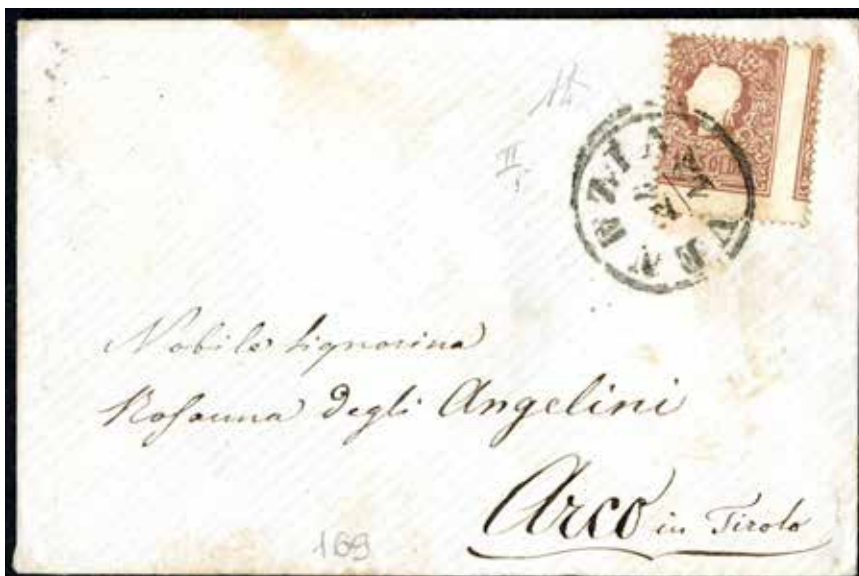 SOLDI
VENEZIA
II
Nobile Signorina
Rosanna degli Angelini
Arco in Tirolo
169